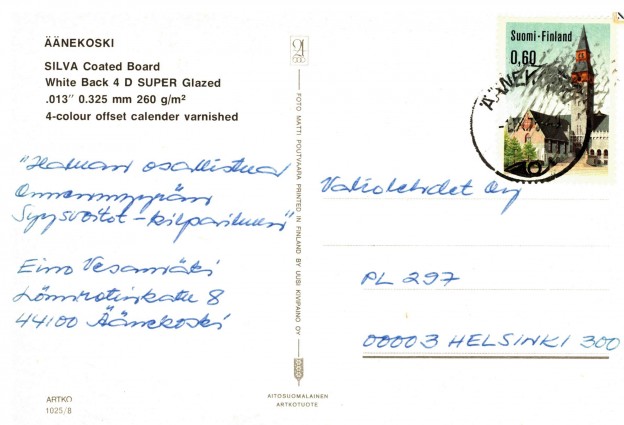 ÄÄNEKOSKI
SILVA Coated Board
White Back 4 D SUPER Glazed
.013″ 0.325 mm 260 g/m²
4-colour offset calender varnished
"Haluan osallistua
Onnenmyyrän
Syysvoitot-kilpailuun"
Eino Vesamäki
Lönnrotinkatu 8
44100 Äänekoski
ARTKO
1025/8
FOTO MATTI POUTVAARA PRINTED IN FINLAND BY UUSI KIVIPAINO OY
AITOSUOMALAINEN
ARTKOTUOTE
Suomi-Finland
0,60
ÄÄNEK
Valiolehdet Oy
PL 297
00003 HELSINKI 300